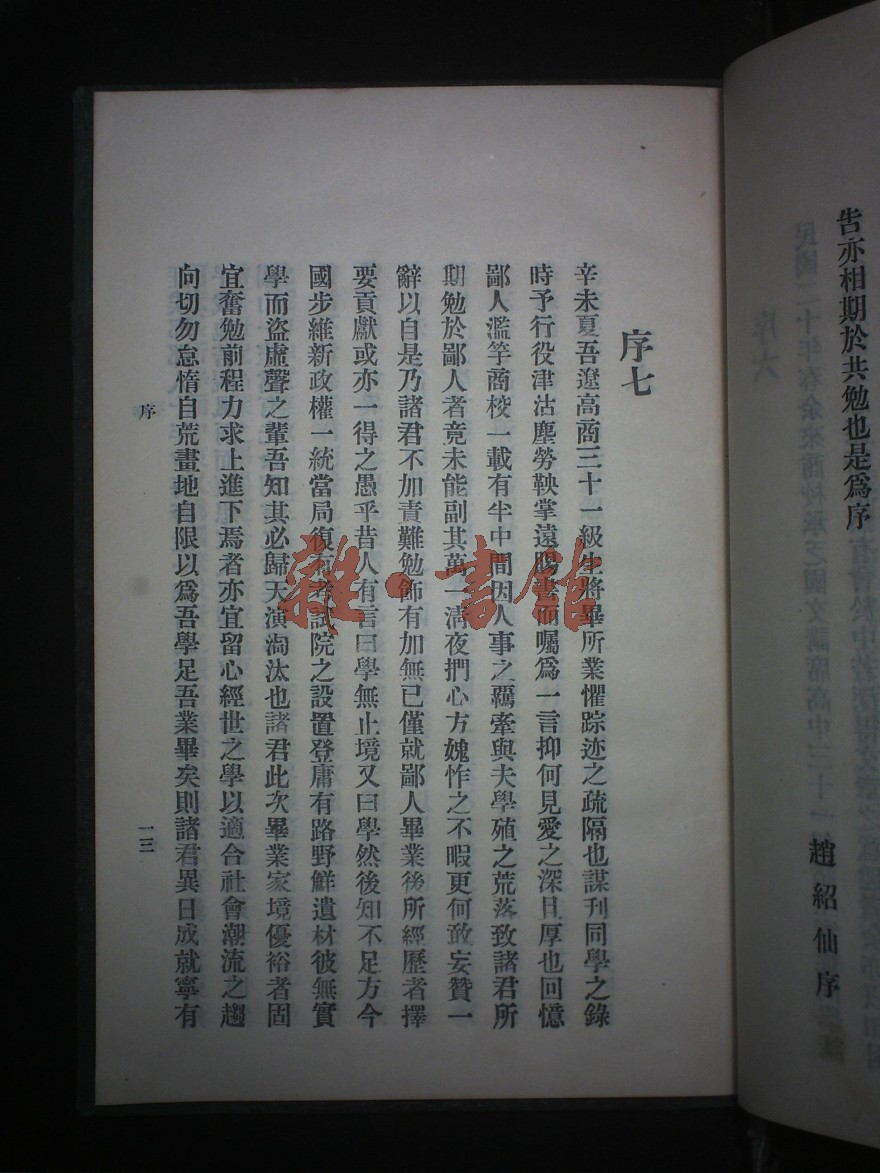 告亦相期於共勉也是爲序
趙紹仙序
序七
辛未夏吾遼高商三十一級生將畢所業懼踪迹之疏隔也謀刊同學之錄
時予行役津沽塵勞鞅掌遠賜書而囑爲一言抑何見愛之深且厚也回憶
鄙人濫竽商校一載有半中間因人事之羈牽與夫學殖之荒落致諸君所
期勉於鄙人者竟未能副其萬一淸夜捫心方媿怍之不暇更何敢妄贊一
辭以自是乃諸君不加責難勉飾有加無已僅就鄙人畢業後所經歷者擇
要貢獻或亦一得之愚乎昔人有言曰學無止境又曰學然後知不足方今
國步維新政權一統當局復有考試院之設置登庸有路野鮮遺材彼無實
學而盜虛聲之輩吾知其必歸天演淘汰也諸君此次畢業家境優裕者固
宜奮勉前程力求上進下焉者亦宜留心經世之學以適合社會潮流之趨
向切勿怠惰自荒畫地自限以爲吾學足吾業畢矣則諸君異日成就寧有
序
一三
雜·書館